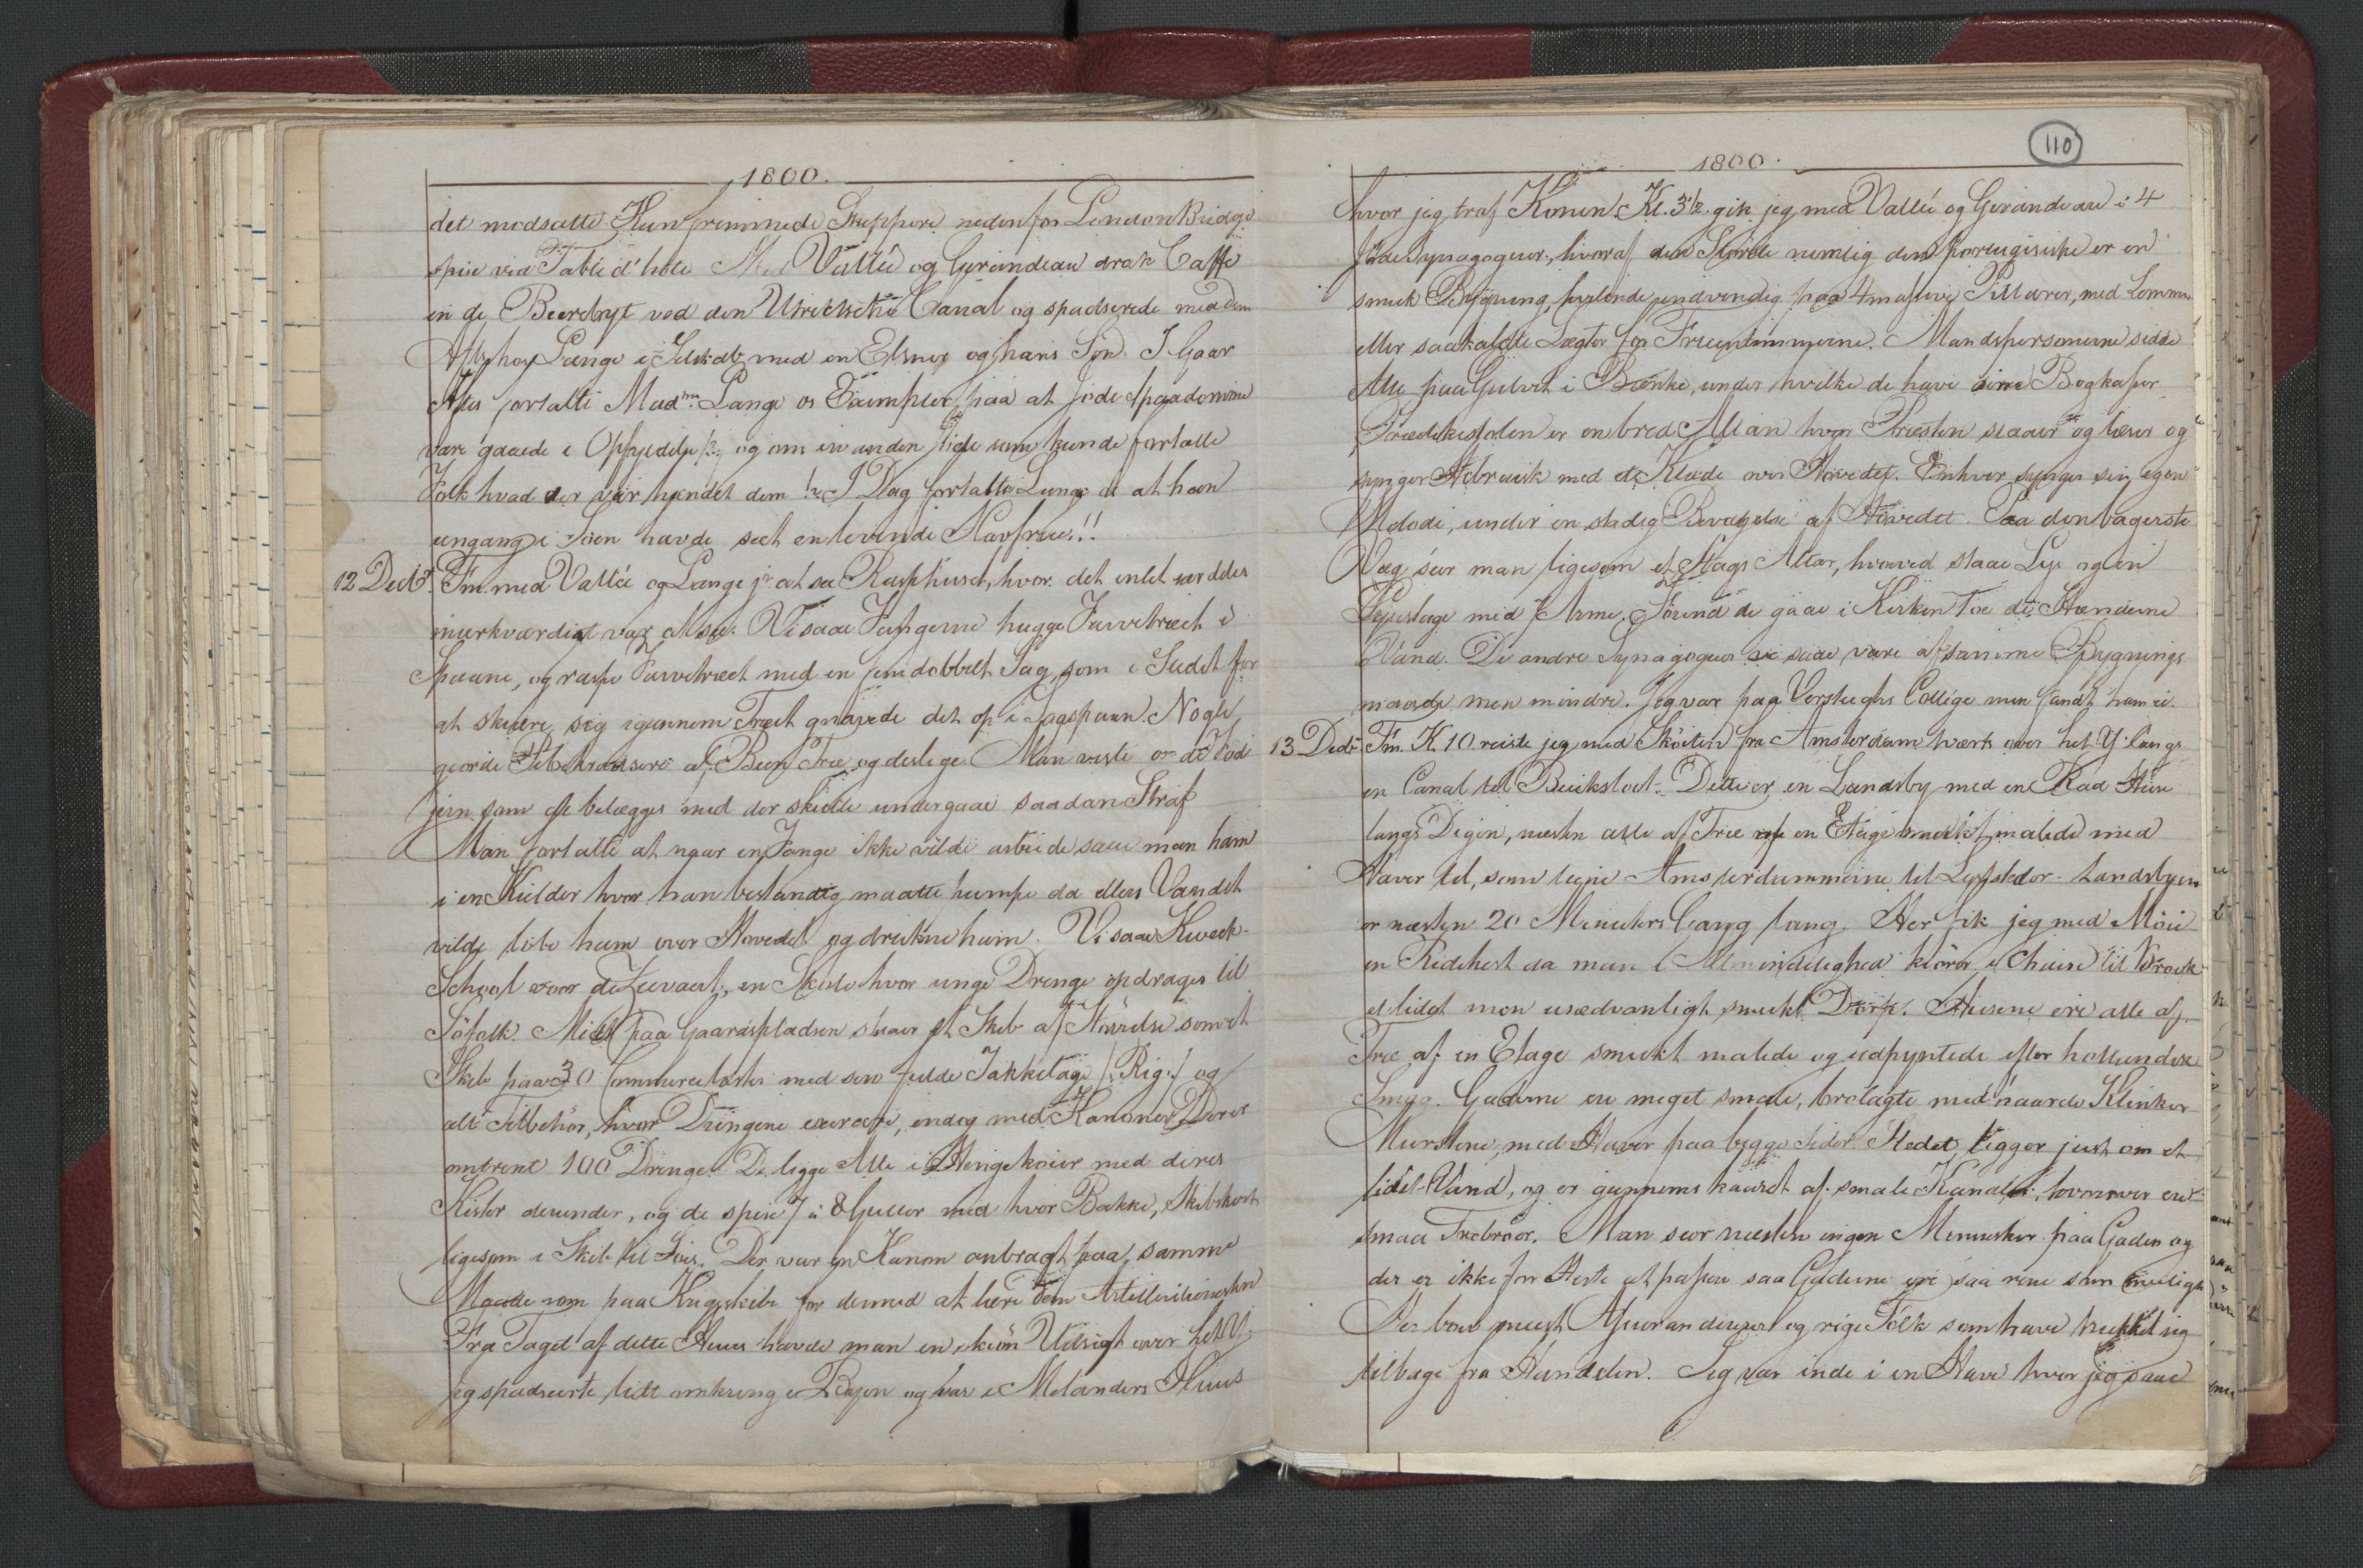 1800.
det modsatte Kun fremmede Skeppere nedenfor London Bridge
spise ved Table d'hote Med Vallée og Girandeau drak Caffe
in de Beerebyt ved den Utrechtsche Canal og spadserede med dem
Lange i Selskab med en Elsner og hans Søn. I Gaar
Aftes fortalte Madme Lange os Exempler paa at Jøde spaadomme
vare gaaede i Opfyldelse og om en anden som kunde fortælle
Folk hvad der var hændet dem !: I Dag fortalte Lange at han
eengang i Søen havde seet en levende Havfrue!!
12 Decbr. Fm. med Vallée og Lange jr at see Rasphuset, hvor det intet særdeles
mærkværdigt var at see. Vi saae Fangerne hugge Farvetræet i
Spaane, og raspe Farvetræet med en femdobbelt Sag, som i Stedet for
at skiære sig igiennem Træet gnavede det op i Sagspaan. Nogle
giorde af Been Træ og deslige. Man viste os de Fod
jern som de belægges med der skulle undergaae saadan Straf
Man fortalte at naar en Fange ikke vilde arbeide saae man ham
i en Kielder hvor han bestandig maatte pumpe da ellers Vandet
vilde løbe ham over Hovedet og drukne ham. Vi saae Kweek-
School voor de Zeevaart, en Skole hvor unge Drenge opdrages til
Søfolk. Midt paa Gaardspladsen staaer et Skib af Størrelse som et
Skib paa 30 Commercelæster med sin fulde Takkelage /:Rig:/ og
alt Tilbehør, hvor Drengene exercere, endog med Kanoner. Der er
omtrent 100 Drenge. De ligge Alle i Hengekøier med deres
Kister derunder, og de spise 7 à 8 Gutter ved hver Bakke, Skibskost
ligesom i Skib til Søes. Der var en Kanon anbragt paa samme
Maade som paa Krigsskibe for dermed at lære dem Artilleriekunsten
Fra Taget af dette Huus havde man en skiøn Udsigt over het Y,
jeg spadseerte lidt omkring i Byen og var i Melanders Huus
110
1800.
hvor jeg traf Konen. Kl. 3½ gik jeg med Vallée og Girandeau i 4
Jøde Synagoguer, hvoraf den Største nemlig den portugisiske er en
smuk Bygning, hvilende indvendig paa 4 massive Pillarer, med
eller saakaldte Lægter for Fruentimmerne. Mandspersonerne sidde
Alle paa Gulvet i Bænke, under hvilke de have sine Bogkasser
Prædikestolen er en bred Altan hvor Præsten staaer og læser og
synger Hebraisk med et Klæde over Hovedet. Enhver synger sin egen
Melodi, under en stadig Bevægelse af Hovedet. Paa den bagerste
Væg seer man ligesom et Slags Altar, hvorved staae Lys og en
Lysestage med 7 Arme. Førend de gaae i Kirken toe de Hænderne
i Vand. De andre Synagoguer vi saae vare af samme Bygnings
maade men mindre. Jeg var paa Versteeghs Collége men fandt ham ei.
13 Decbr Fm. K. 10 reiste jeg med Skøiten fra Amsterdam tværts over het Y. langs
en Canal til Buiksloot. Dette er en Landsby med en Rad Huse
langs Digen, næsten alle af Træ af en Etage smukt malede med
Haver til, som leeje Amsterdammerne til Lyststeder. Landsbyen
er næsten 20 Minuters Gang lang. Her fik jeg med Møie
en Ridehest da man i Almindelighed kiører i Chaise til Broek
et lidet men usædvanligt smukt Dorp. Husene ere alle af
Træ af en Etage smukt malede og udpyntede efter hollandsk
Smag. Gaderne ere meget smale, brolagte med haarde Klinker
Mursteene, med Haver paa begge Sider. Stedet ligger just om et
lidet Vand, og er giennemskaaret af smale Kanaler, hvorover ere
smaa Træbroer. Man seer næsten ingen Mennesker paa Gaden og
der er ikke for Heste at passere saa Gaderne ere saa rene som mueligt
Her boer meest og rige Folk som have trukket sig
tilbage fra Handelen. Jeg var inde i en Have hvor jeg saae